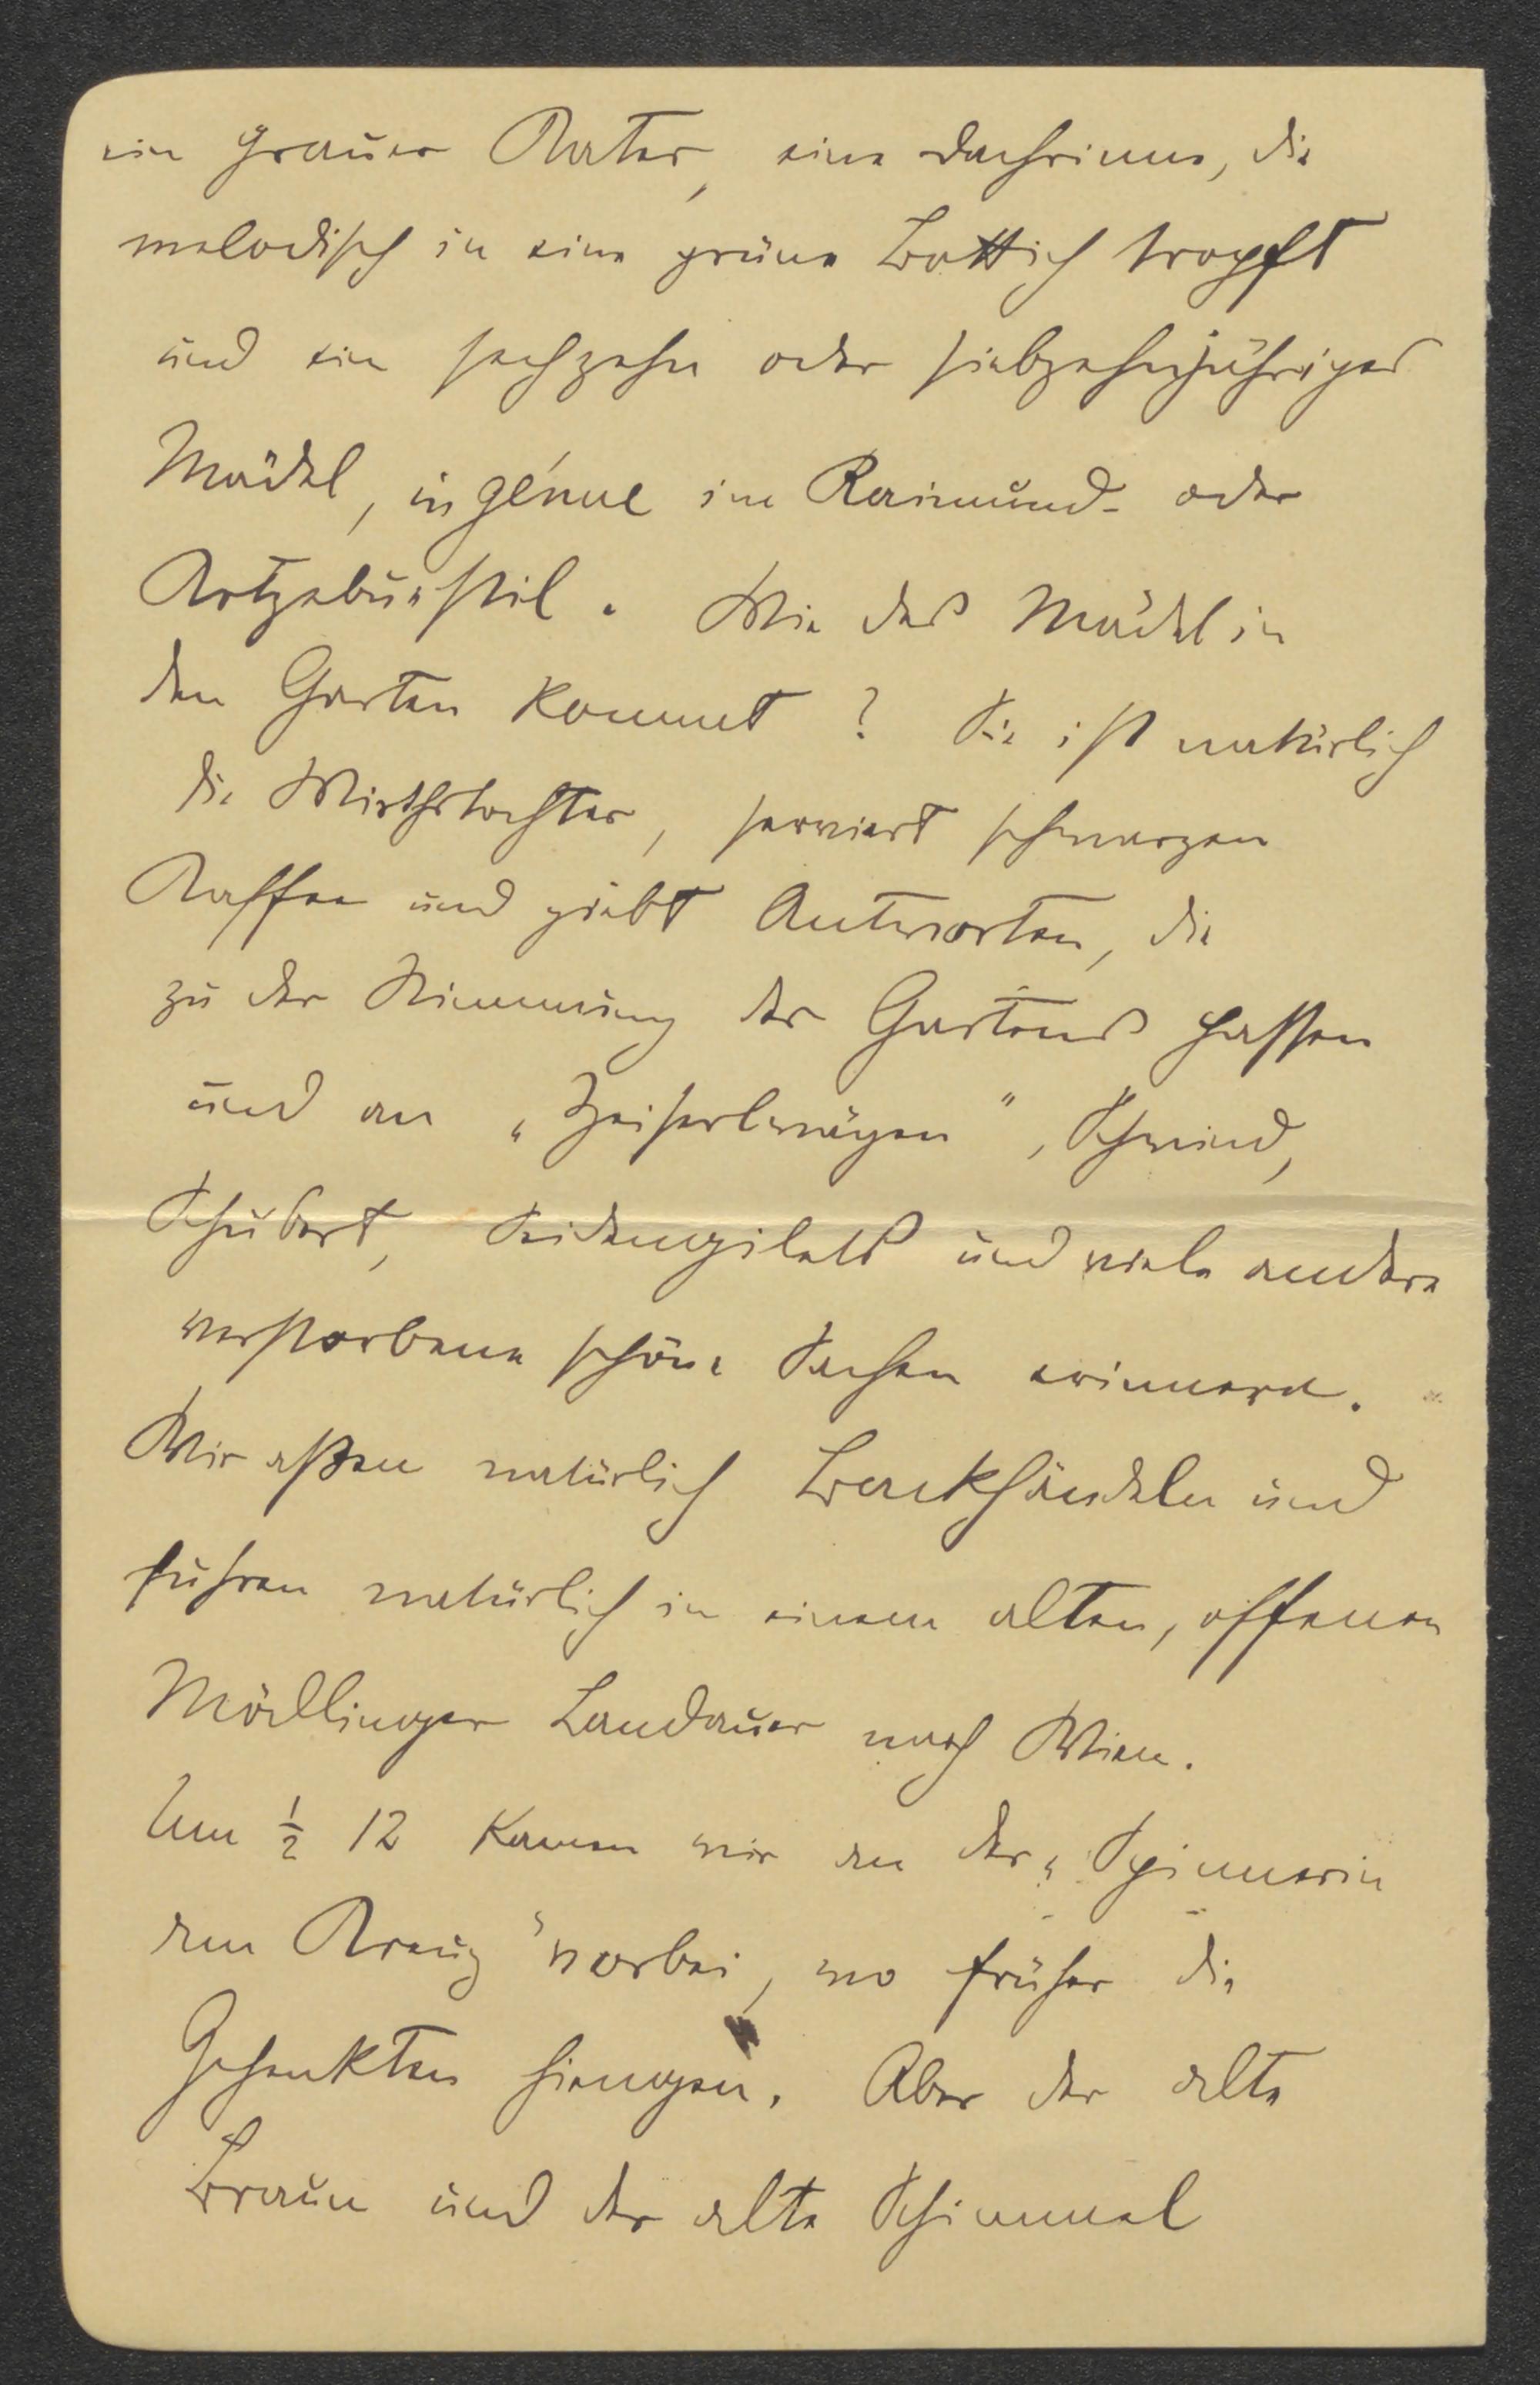 ein grauer Kater, eine Dachrinne, die
melodisch in eine grüne Bottich tropft
und ein sechzehn oder siebzehnjähriges
Mädel, ingénue im Raimund- oder
Kotzebuestil. Wie das Mädel in
den Garten kommt? Sie ist natürlich
die Wirthstochter, serviert schwarzen
Kaffee und giebt Antworten, die
zu der Stimmung des Gartens passen
und an „Zeiserlwägen“, Schwind,
Schubert, Seidengilets und viele andere
verstorbene schöne Sachen erinnern.
Wir aßen natürlich Backhändeln und
fuhren natürlich in einem alten, offenen
Mödlinger Landauer nach Wien.
Um ½ 12 kamen wir an der „Spinnerin
am Kreuz“ vorbei, wo früher die
Gehenkten hiengen. Aber der alte
Braun und der alte Schimmel